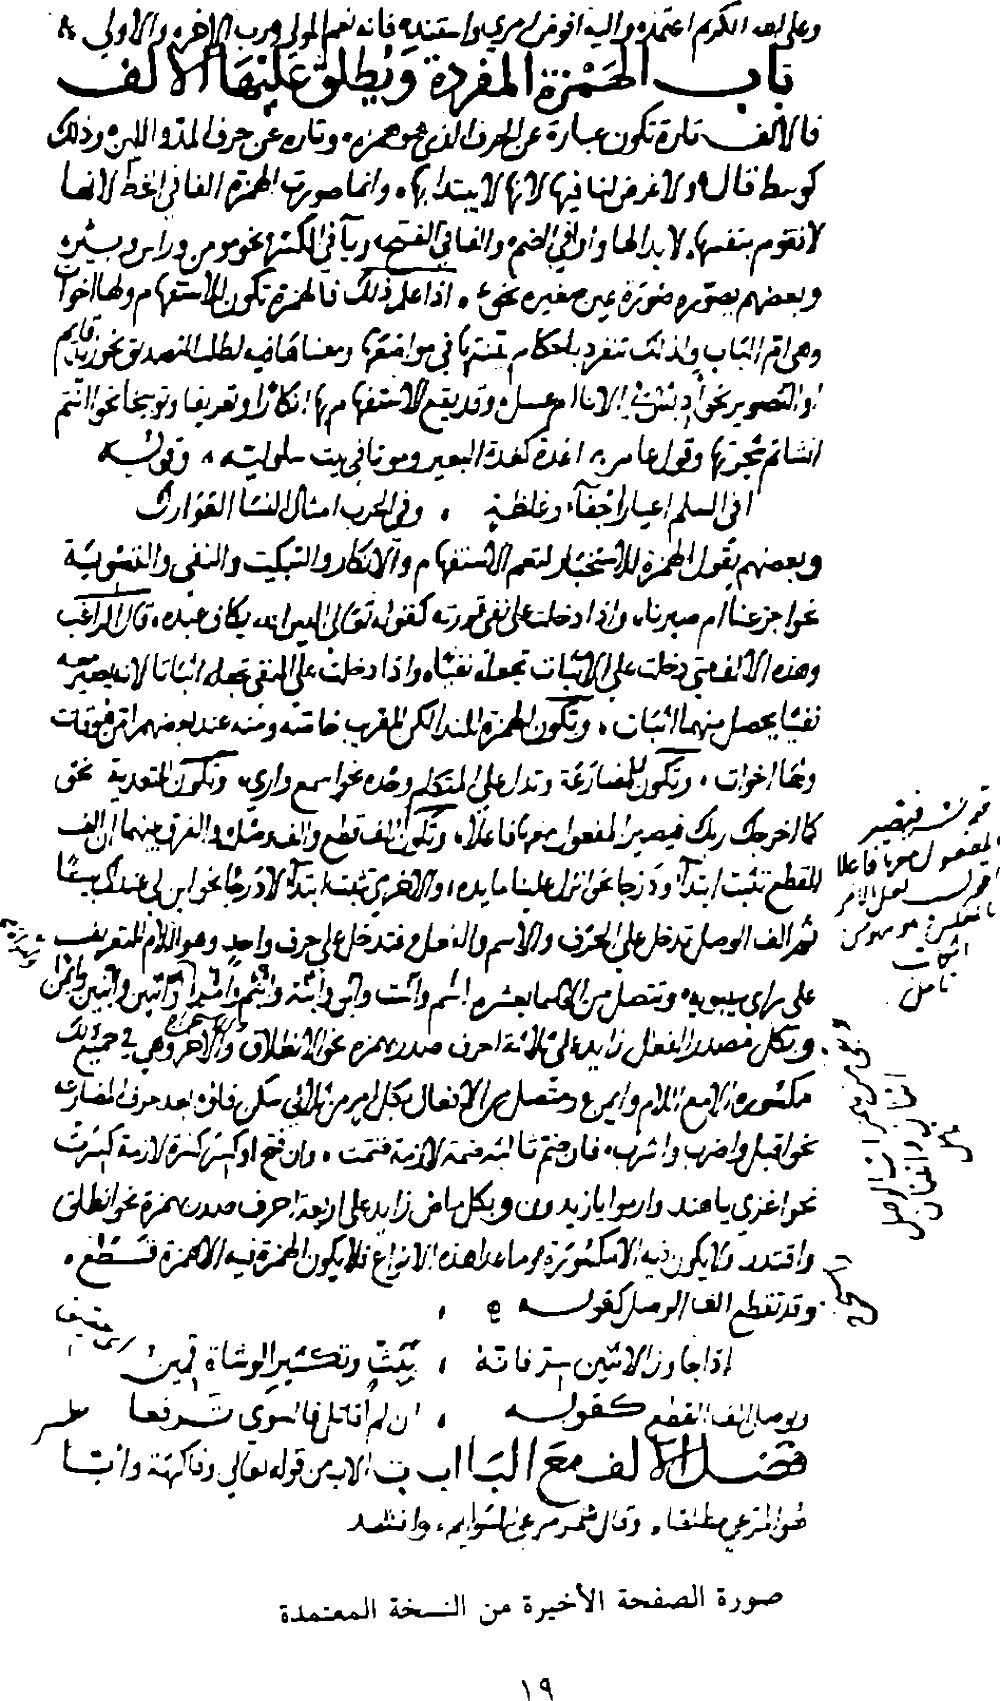 وعلى لطفه الكريم اعتمد واليه افوض امري واستنده فانه نعم المولى ورب الاخرة والاولى
باب الهمزة المفردة ويطلق عليها الالف
فالالف تارة تكون عبارة عن الحرف الذي هو همزه وتاره عن حرف المد واللين وذلك
كوسط قال ولا غرض لنا فيها لانها لا يبتدا بها وانما صورت الهمزة الفا في الخط لانها
لا تقوم بنفسها لابدالها واوا في الضم والفا في الفتح وياء في الكسر نحو مومن وراس وبير
وبعضهم يصوره صورة عين صغيره نحو ء اذا علم ذلك فالهمزة تكون للاستفهام ولها اخوات
وهي ام الباب ولذلك تنفرد باحكام في مواضعها ومعناها فيه لطلب التصديق نحو ازيد قايم
او التصوير نحو ادبس في الاناء ام عسل وقد يقع الاستفهام بها انكارا وتعريفا وتوبيخا نحو اانتم
انشاتم شجرتها وقول عامر اغدة كغدة البعير وموتا في بيت سلولية وقوله
افي السلم اعيارا جفاء وغلظة وفي الحرب امثال النسا العوارك
وبعضهم يقول الهمزة للاستخبار لتعم الاستفهام والانكار والتبكيت والنفي والتسوية
نحو اجزعنا ام صبرنا واذا دخلت على نفي قررته كقوله تعالى اليس الله بكاف عبده قال الراغب
وهذه الالف متى دخلت على الاثبات تجعله نفيا واذا دخلت على النفي تجعله اثباتا لانه يصير معه
نفيا يحصل منهما اثبات وتكون الهمزة للندا لكن للقرب خاصة ومنه عند بعضهم امن هو قانت
ولها اخوات وتكون للمضارعة وتدل على المتكلم وحده نحو اسمع واري وتكون للتعدية نحو
كما اخرجك ربك فيصير المفعول معها فاعلا وتكون الف قطع والف وصل والفرق بينهما ان الف
القطع تثبت ابتداء ودرجا نحو انزل علينا مايده والاخرى تثبت ابتداء لا درجا نحو ابن لي عندك بيتا
ثم الف الوصل تدخل على الحرف والاسم والفعل فتدخل على حرف واحد وهو اللام للتعريف
على راي سيبويه وتتصل من الاسما بعشره اسم واست وابن وابنة وابنم وامرا واثنين واثنتين وايمن
وبكل مصدر لفعل زايد على ثلاثة احرف صدر بهمزه نحو الانطلاق وهي في جميع ذلك
مكسوره الا مع اللام وايمن وتتصل من الافعال بكل امر من ثلاثي سكن فاؤه بعد حرف المضارعه
نحو اقبل واضرب واشرب فان ضم ثالثه ضمة لازمة ضمت وان فتح او كسر كسرة لازمة كسرت
نحو اغزي يا هند وارموا يا زيدون وبكل ماض زايد على اربعة احرف صدر بهمزة نحو انطلق
واقتدر ولا يكون فيه الا مكسورة وما عدا هذه الانواع فلا يكون الهمزة فيه الا همزة قطع
وقد تقطع الف الوصل كقوله
اذا جاوز الاثنين سر فانه بنث وتكثير الوشاة قمين
ويوصل الف القطع كقوله ان لم اقاتل فالبسوني برقعا
فصل الالف مع البا اب ب الاب من قوله تعالى وفاكهة وابا
هو المرعي مطلقا وقال شمر مرعى السوايم وانشد
قوله فيصير
المفعول معها فاعلا
تامل
صورة الصفحة الأخيرة من النسخة المعتمدة
١٩